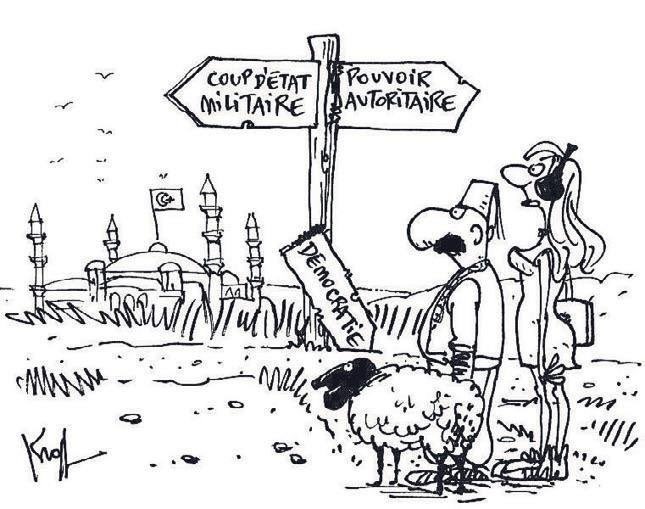 COUP D'ÉTAT
MILITAIRE
POUVOIR
AUTORITAIRE
DÉMOCRATIE
Kroll